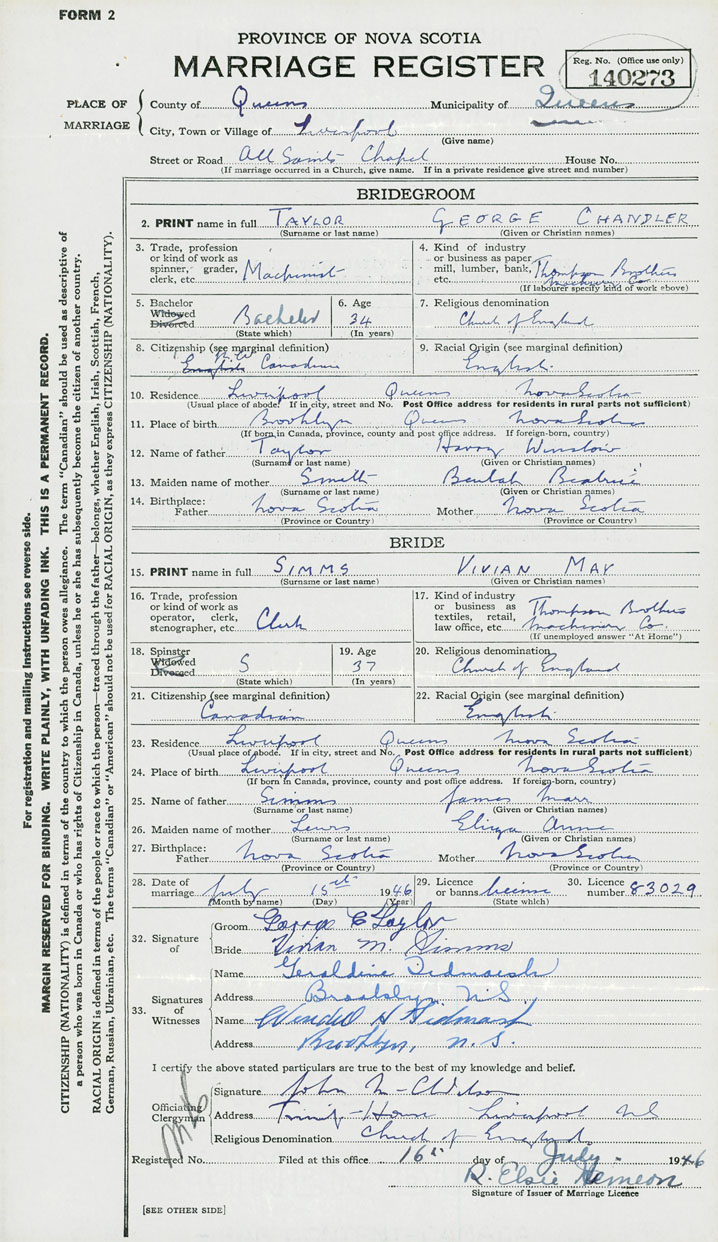 FORM 2
PROVINCE OF NOVA SCOTIA
MARRIAGE REGISTER
Reg. No. (Office use only)
140273
PLACE OF MARRIAGE
County of Queens Municipality of Queens
City, Town or Village of Liverpool
(Give name)
Street or Road All Saints Chapel House No.
(If marriage occurred in a Church, give name. If in a private residence give street and number)
BRIDEGROOM
2. PRINT name in full TAYLOR GEORGE CHANDLER
(Surname or last name) (Given or Christian names)
3. Trade, profession or kind of work as spinner, grader, clerk, etc. Machinist
4. Kind of industry or business as paper mill, lumber, bank, etc. Thompson Brothers Machinery Co
(If labourer specify kind of work above)
5. Bachelor Widowed Divorced Bachelor
(State which)
6. Age 34
(In years)
7. Religious denomination
Church of England
8. Citizenship (see marginal definition)
English Canadian
9. Racial Origin (see marginal definition)
English
10. Residence Liverpool Queens Nova Scotia
(Usual place of abode. If in city, street and No. Post Office address for residents in rural parts not sufficient)
11. Place of birth Brooklyn Queens Nova Scotia
(If born in Canada, province, county and post office address. If foreign-born, country)
12. Name of father Taylor Harry Winslow
(Surname or last name) (Given or Christian names)
13. Maiden name of mother Smith Beulah Beatrice
(Surname or last name) (Given or Christian names)
14. Birthplace: Father Nova Scotia Mother Nova Scotia
(Province or Country) (Province or Country)
BRIDE
15. PRINT name in full SIMMS VIVIAN MAY
(Surname or last name) (Given or Christian names)
16. Trade, profession or kind of work as operator, clerk, stenographer, etc. Clerk
17. Kind of industry or business as textiles, retail, law office, etc. Thompson Brothers Machinery Co.
(If unemployed answer "At Home")
18. Spinster Widowed Divorced S
(State which)
19. Age 37
(In years)
20. Religious denomination
Church of England
21. Citizenship (see marginal definition)
Canadian
22. Racial Origin (see marginal definition)
English
23. Residence Liverpool Queens Nova Scotia
(Usual place of abode. If in city, street and No. Post Office address for residents in rural parts not sufficient)
24. Place of birth Liverpool Queens Nova Scotia
(If born in Canada, province, county and post office address. If foreign-born, country)
25. Name of father Simms James Marr
(Surname or last name) (Given or Christian names)
26. Maiden name of mother Lewis Eliza Anne
(Surname or last name) (Given or Christian names)
27. Birthplace: Father Nova Scotia Mother Nova Scotia
(Province or Country) (Province or Country)
28. Date of marriage July 15th 1946
(Month by name) (Day) (Year)
29. Licence or banns license
(State which)
30. Licence number 83029
32. Signature of
Groom George C Taylor
Bride Vivian M. Simms
33. Signatures of Witnesses
Name Geraldine Tidmarsh
Address Brooklyn, N.S.
Name Wendell H Tidmarsh
Address Brooklyn, N.S.
I certify the above stated particulars are true to the best of my knowledge and belief.
Officiating Clergyman
Signature John
Address Liverpool NS
Religious Denomination Church of England
Registered No. Filed at this office 16th day of July 1946
R. Elsie Hemeon
Signature of Issuer of Marriage Licence
[SEE OTHER SIDE]
For registration and mailing instructions see reverse side.
MARGIN RESERVED FOR BINDING. WRITE PLAINLY, WITH UNFADING INK. THIS IS A PERMANENT RECORD.
CITIZENSHIP (NATIONALITY) is defined in terms of the country to which the person owes allegiance. The term "Canadian" should be used as descriptive of
a person who was born in Canada or who has rights of Citizenship in Canada, unless he or she has subsequently become the citizen of another country.
RACIAL ORIGIN is defined in terms of the people or race to which the person—traced through the father—belongs, whether English, Irish, Scottish, French,
German, Russian, Ukrainian, etc. The terms "Canadian" or "American" should not be used for RACIAL ORIGIN, as they express CITIZENSHIP (NATIONALITY).